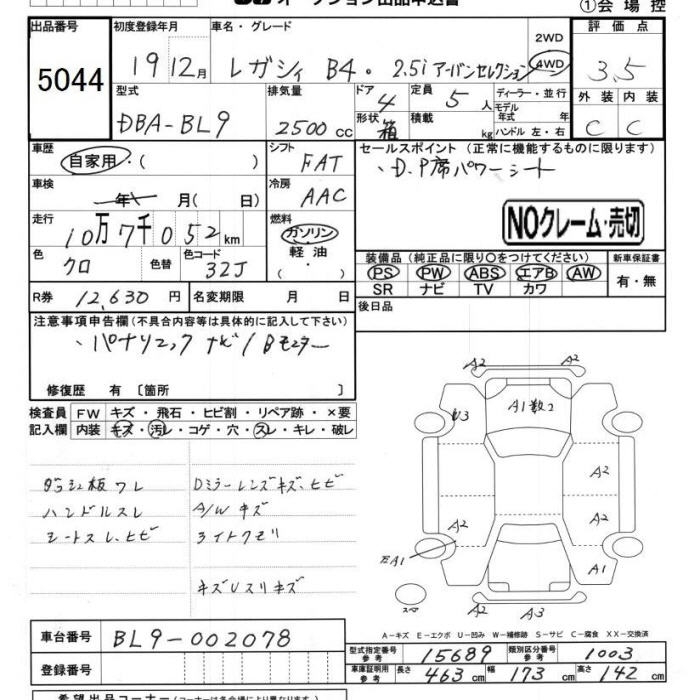 オークション出品申込書
①会場控
出品番号 初度登録年月 車名・グレード 評価点
5044 19 12月 レガシィ B4・2.5i アーバンセレクション 2WD 4WD 3.5
型式 排気量 ドア 4 定員 5 人 ディーラー・並行 外装 内装
DBA-BL9 2500 CC 形状 箱 積載 kg モデル年式 年 ハンドル 左・右 C C
車歴 自家用・( ) シフト FAT セールスポイント (正常に機能するものに限ります)
車検 年 月( 日) 冷房 AAC 、D.P席パワーシート
走行 10万7千052km 燃料 ガソリン・軽油・ NOクレーム・売切
色 クロ 色替 色コード 32J 装備品(純正品に限り○をつけてください) 新車保証書
PS PW ABS エアB AW 有・無
SR ナビ TV カワ
R券 12,630 円 名変期限 月 日 後日品
注意事項申告欄(不具合内容等は具体的に記入して下さい)
、パナソニック ナビ/Bモニター
修復歴 有 〔箇所 〕
検査員 FW キズ・飛石・ヒビ割・リペア跡・×要
記入欄 内装 キズ・汚レ・コゲ・穴・スレ・キレ・破レ
ダッシュ板ワレ Dミラーレンズキズ、ヒビ
ハンドルスレ A/Wキズ
シートスレ、ヒビ ライトクモリ
キズUスリキズ
A2 A2
U3 A1数コ
A2
A2 A2
万A1 A1
スペ A2 A3
A−キズ E−エクボ U−凹み W−補修跡 S−サビ C−腐食 XX−交換済
車台番号 BL9-002078
登録番号
型式指定番号 参考 15689 類別区分番号 参考 1003
車庫証明用 参考 長さ 463 cm 幅 173 cm 高さ 142 cm
希望出品コーナー(コーナーは各会場により異なります)